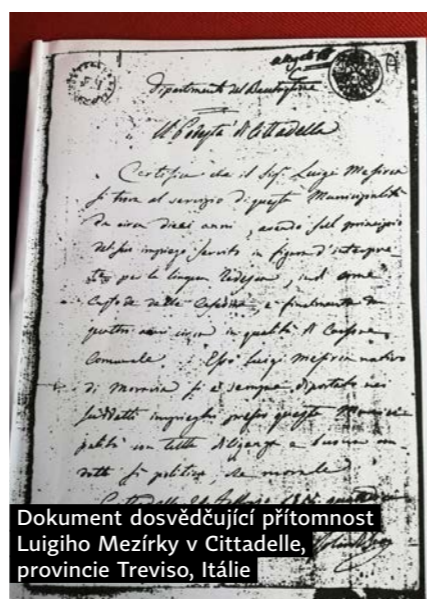 Dipartimento del Bacchiglione
Il Podestà di Cittadella
Certifica che il Sig. Luigi Mesirca
si trova al servizio di questa Municipalità
da circa dieci anni, avendo sul principio
del suo impiego servito in figura d'interpre-
te per la lingua Tedesca, indi come
Custode delle Caserme, e finalmente da
quattro anni circa in qualità di Cursore
Comunale. Esso Luigi Mesirca nativo
di Moravia si è sempre diportato nei
suddetti impieghi presso questa Munici-
palità con tutta diligenza e buona con-
dotta sì politica, che morale
Cittadella
Dokument dosvědčující přítomnost
Luigiho Mezírky v Cittadelle,
provincie Treviso, Itálie